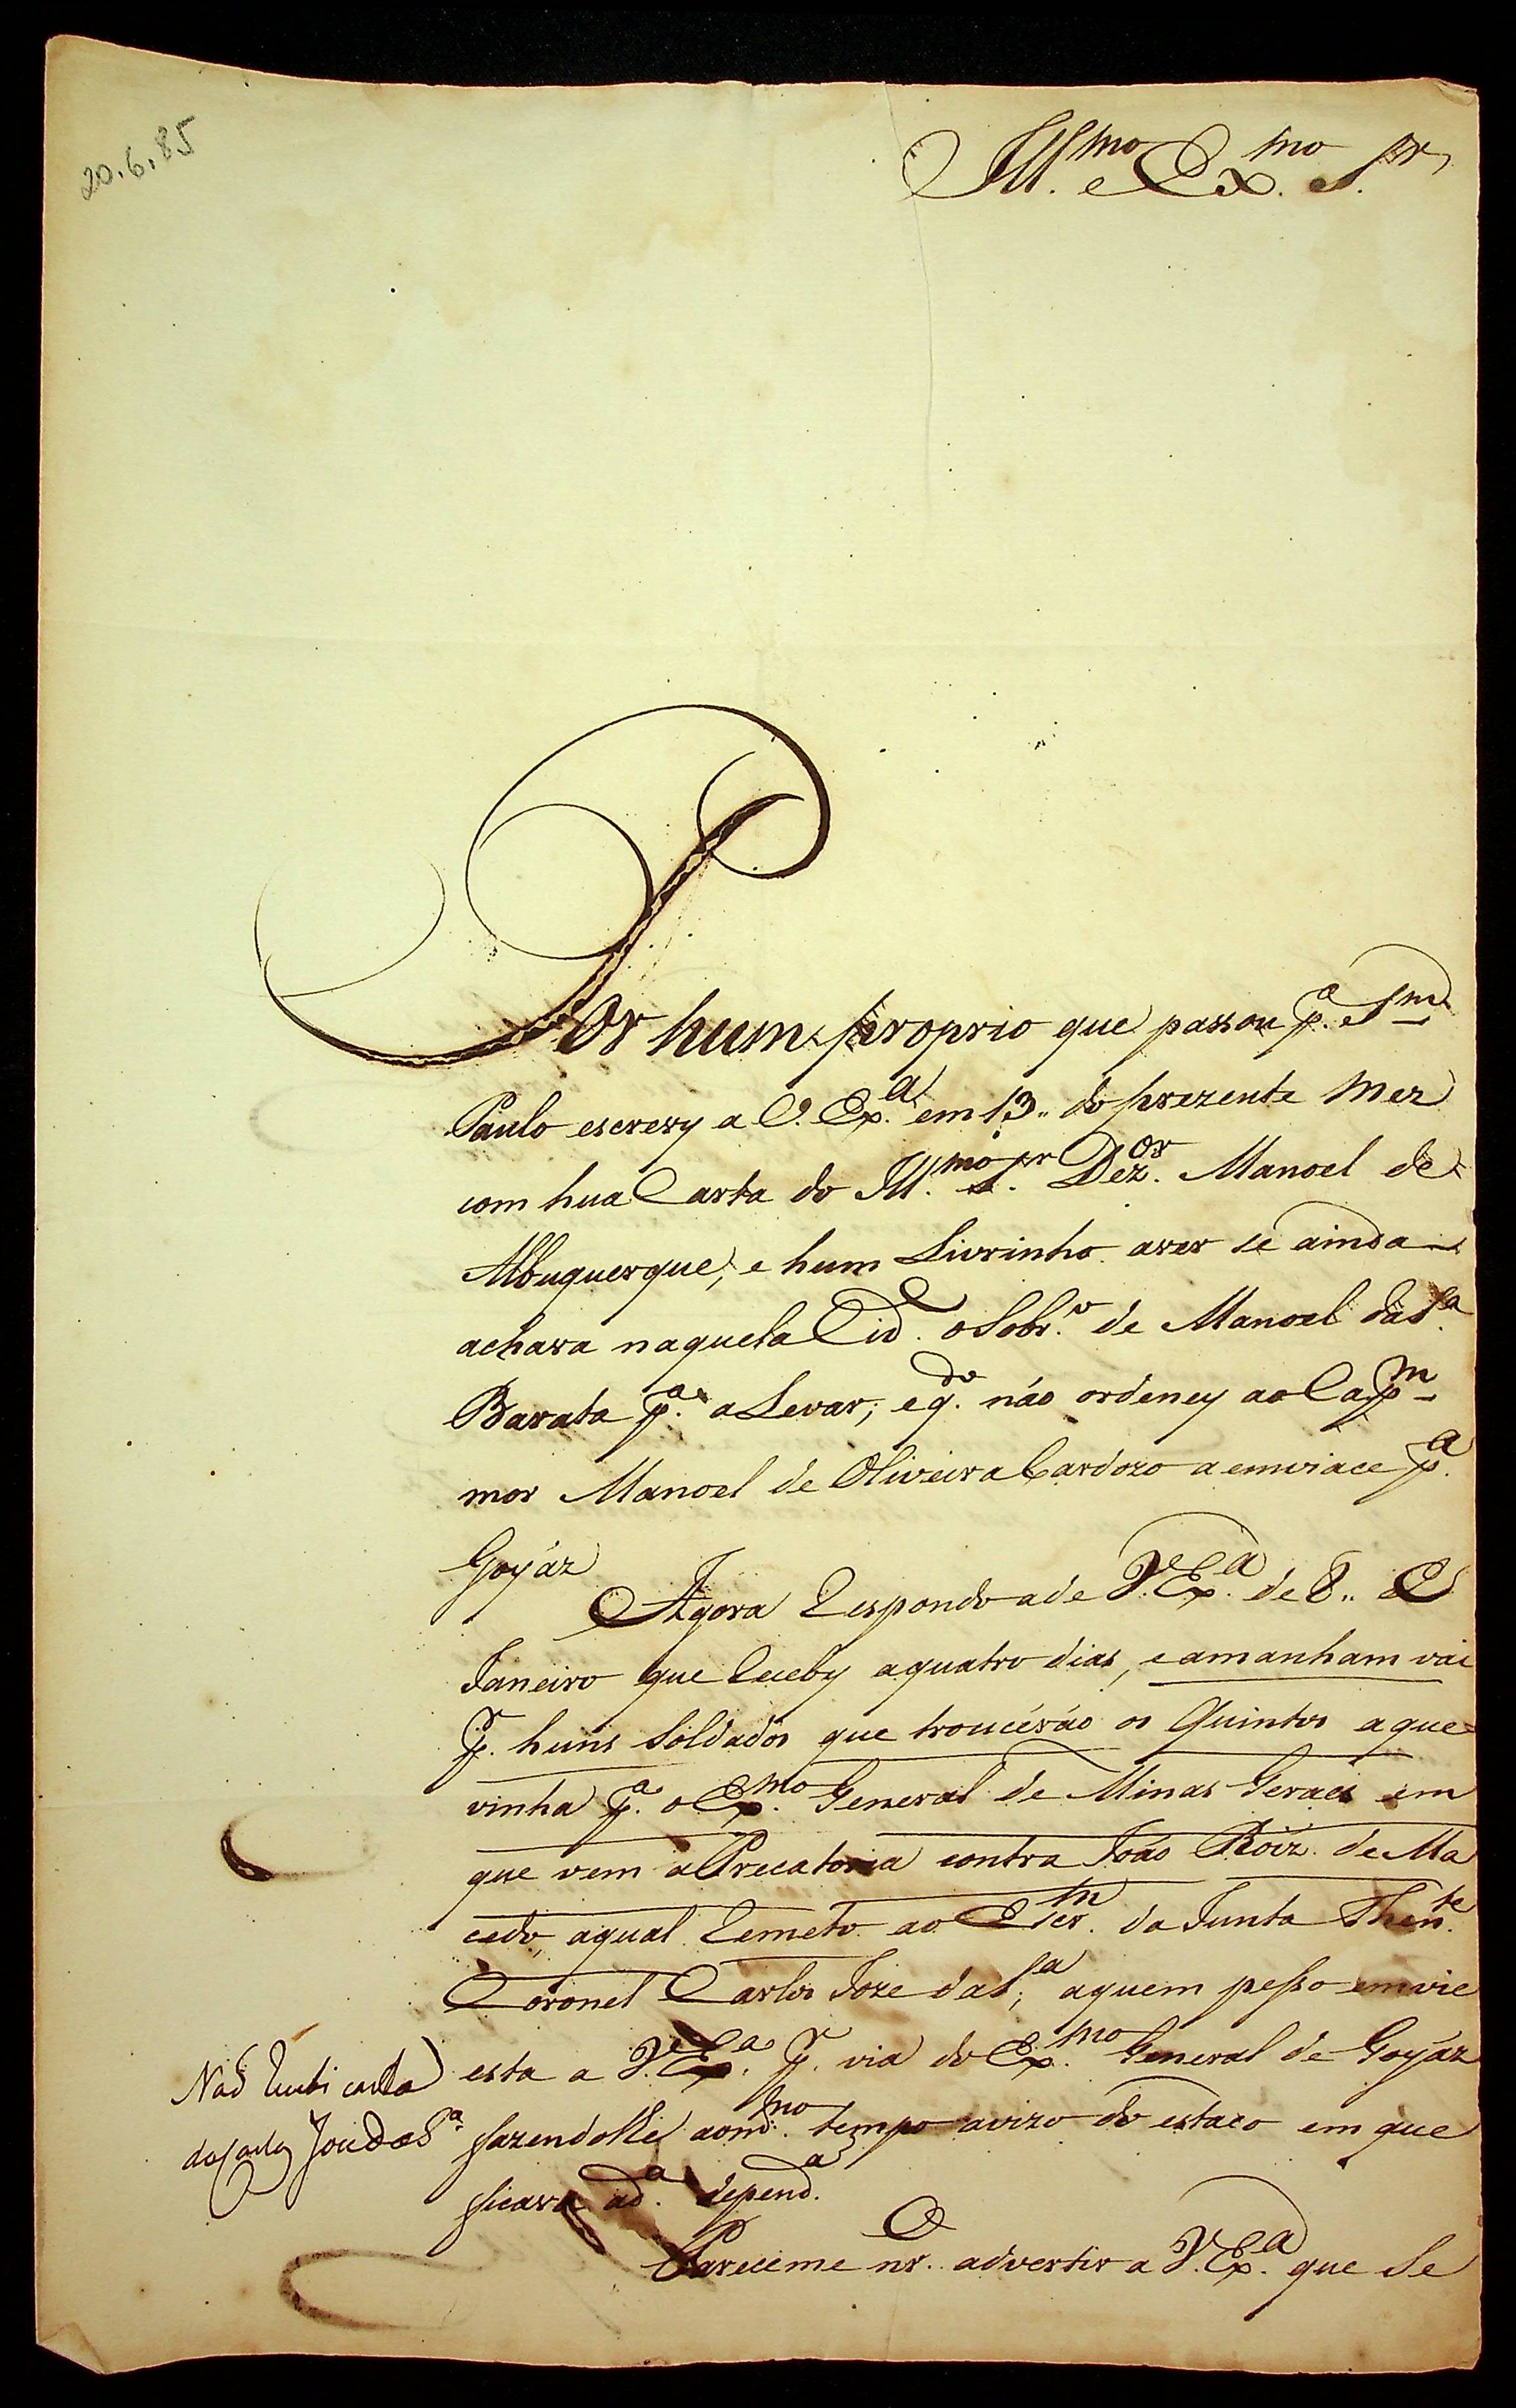 20.6.85
Ill.mo e Ex.mo S.r
Por hum proprio que passou p.a S.m
Paulo escrevy a V. Ex.a em 13.. do prezente Mez
com hua Carta do Ill.mo S.r Dez.or Manoel de
Albuquerque, e hum Livrinho aver se ainda
achava naquela Cid.e o Sobr.o de Manoel da S.a
Barata p.a a Levar; e q.do não ordeney ao Cap.m
mor Manoel de Oliveira Cardozo a enviace p.a
Goyáz
Agora Respondo a de V. Ex.a de 8.. de
Janeiro que Receby a quatro dias, e amanham vai
p.r huns Soldados que troucérão os Quintos a que
vinha p.a o Ex.mo General de Minas Geraes em
que vem a Precatoria contra João Roiz. de Ma
cedo, a qual Remeto ao Escr.m da Junta Then.te
Coronel Carlos Joze da S.a, a quem pesso envie
esta a V. Ex.a p.r via do Ex.mo General de Goyáz
fazendolhe ao m.mo tempo avizo do estaco em que
ficava a d.a depend.a
Não Recebi carta
de Carlos Joze da S.a
Pareceme nr.o advertir a V. Ex.a que Se